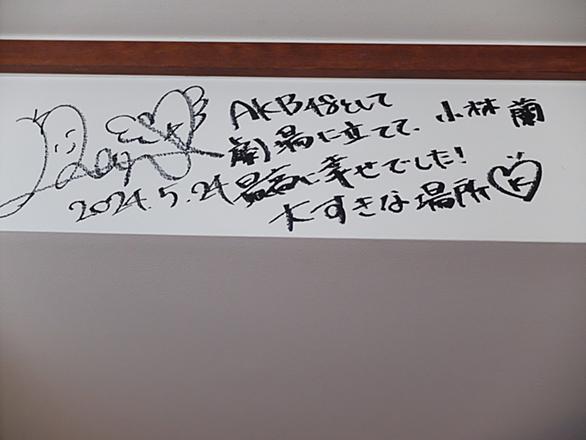 AKB48として
劇場に立てて、小林 蘭
最高に幸せでした!
2024.5.24
大すきな場所